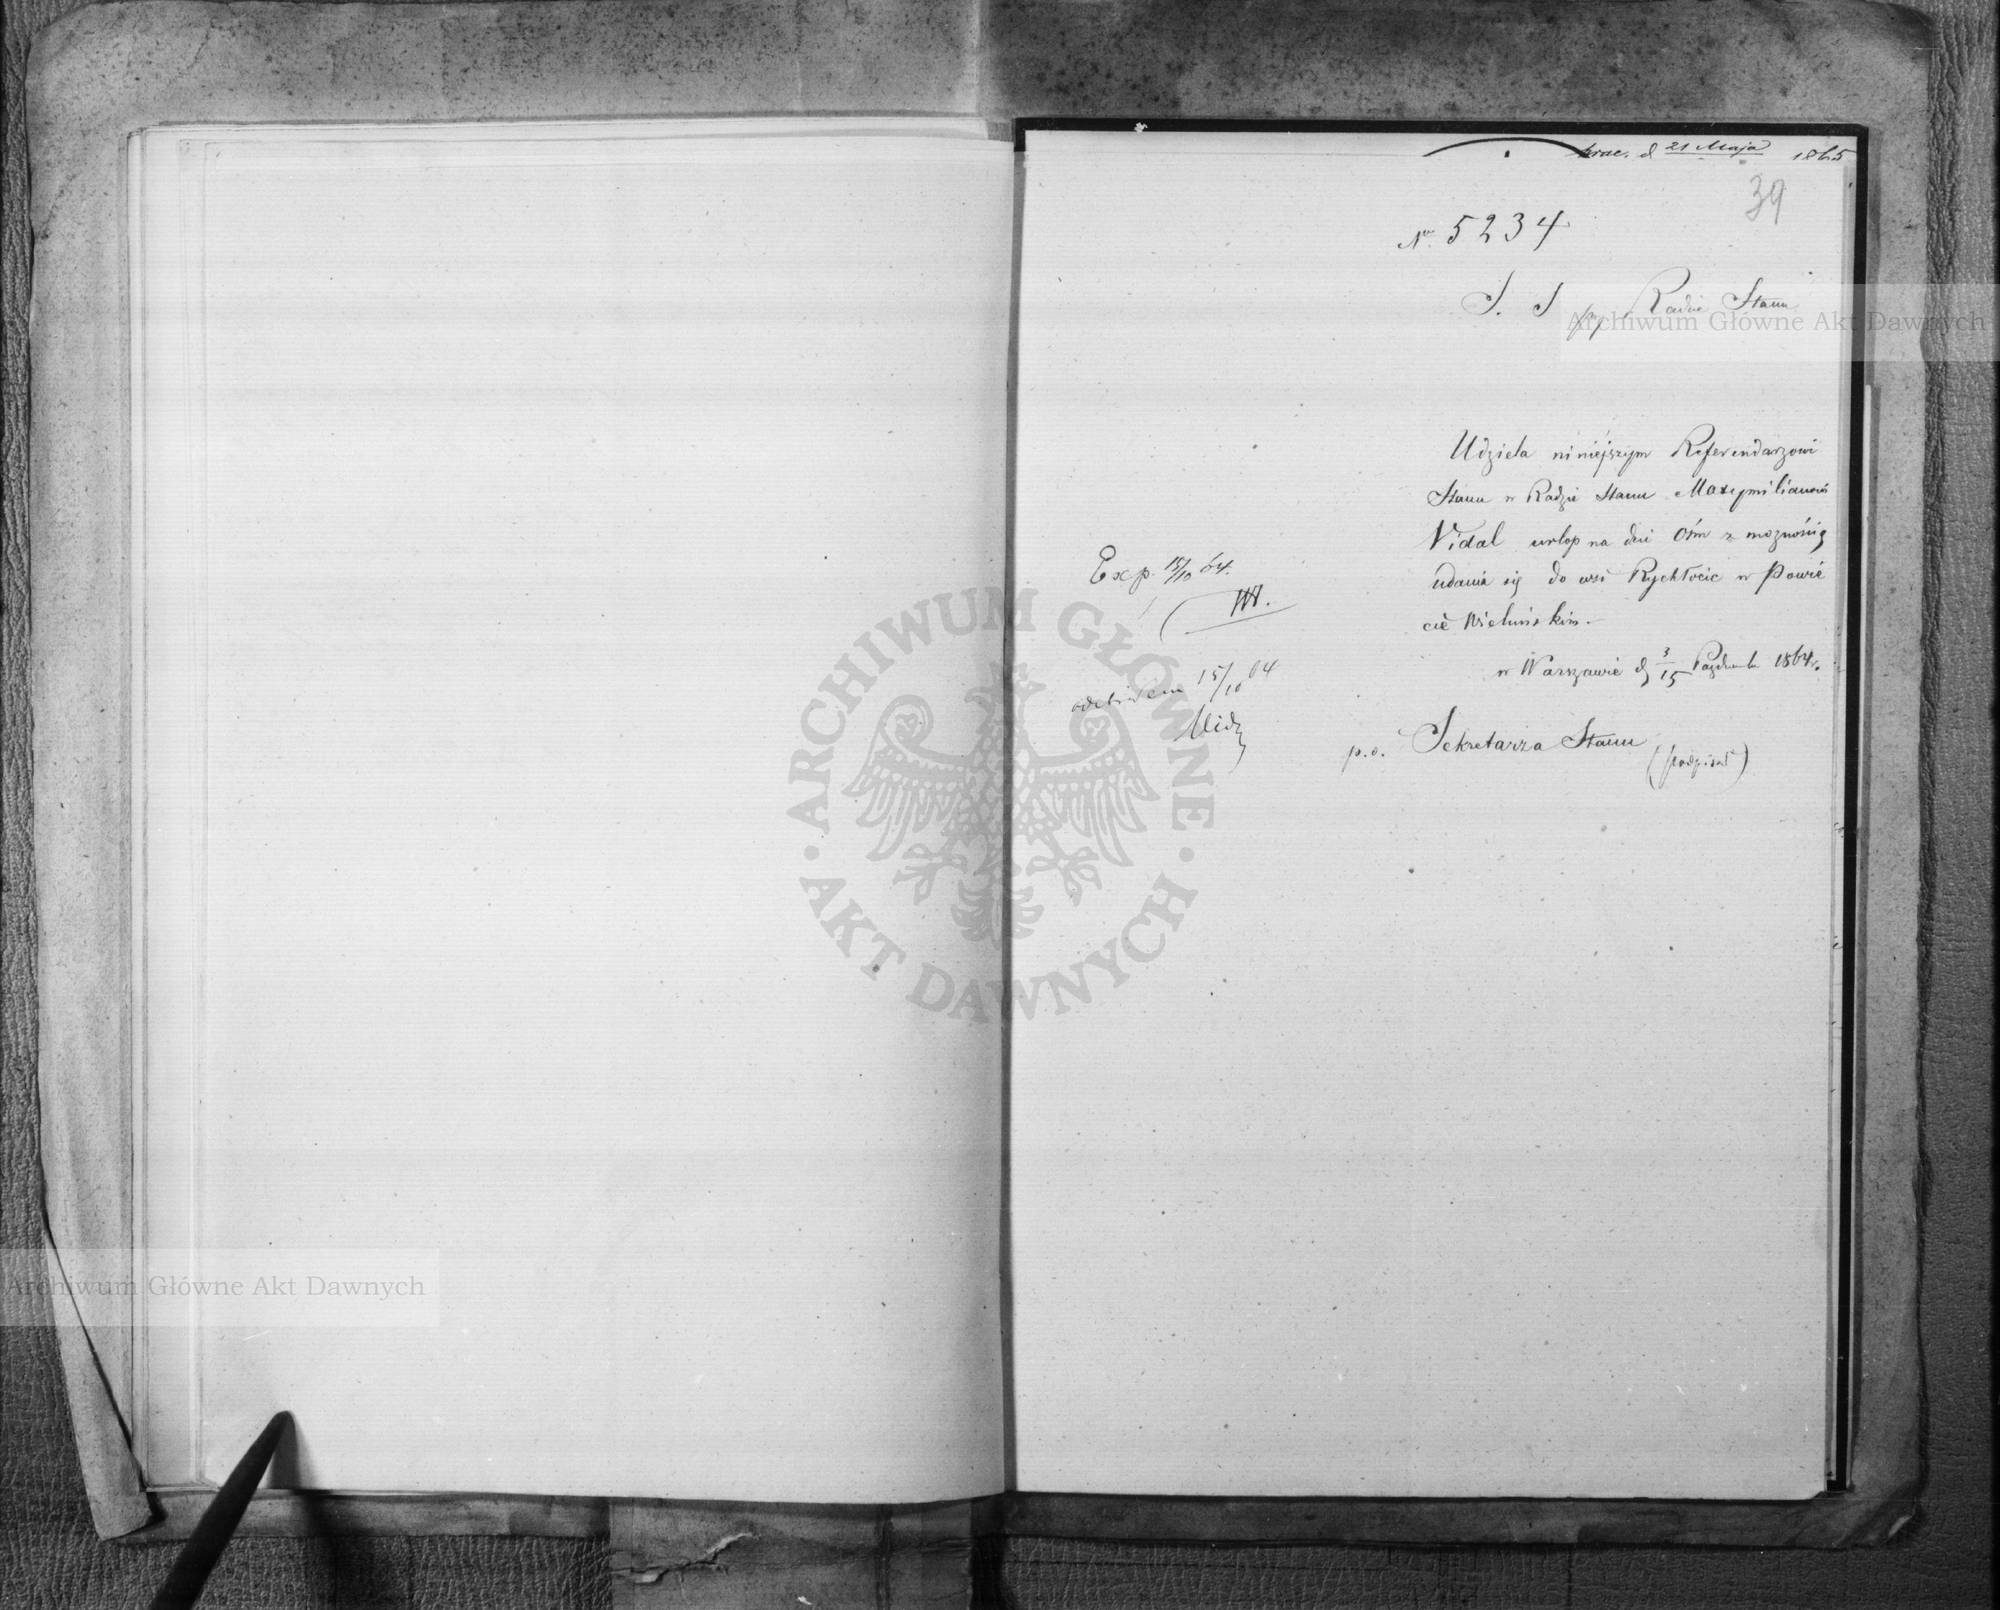 d 21 Maja 1865
39
No 5234
S. S. przy Radzie Stanu
Udziela niniejszym Referendarzowi
Stanu w Radzie Stanu Maxymilianowi
Vidal urlop na dni Ośm z możnością
udania się do wsi Rychłocic w Powie
cie Wieluńskim.-
w Warszawie d 3/15 Październ 1864 r.
p.o. Sekretarza Stanu
(podpisał)
Exp. 15/10 64.
odebrałem 15/10 64
Archiwum Główne Akt Dawnych
ARCHIWUM GŁÓWNE · AKT DAWNYCH ·
Archiwum Główne Akt Dawnych